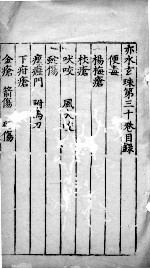 赤水玄珠第三十卷目錄
便毒
楊梅瘡
杖瘡
吠咬 風入瘡
跌傷
癍癧門 附馬刀
下疳瘡
金瘡 箭傷 跌傷